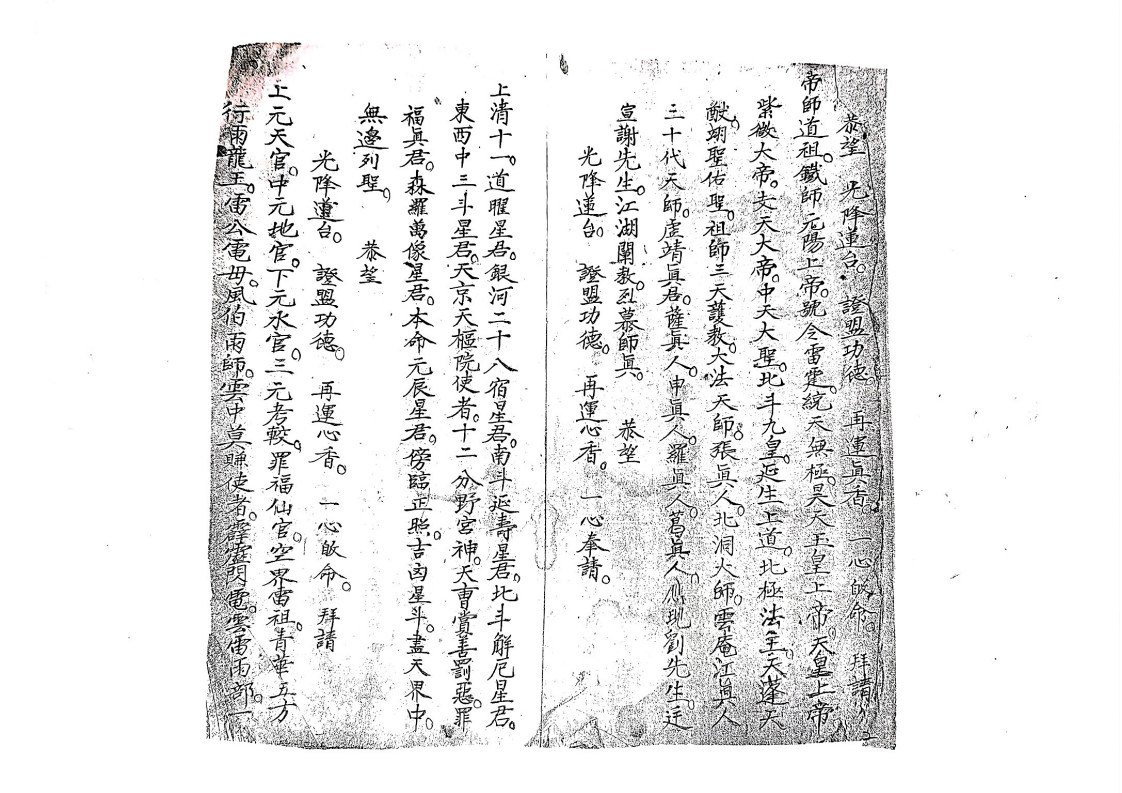 恭望　光降蓮台。證盟功德　再運眞香。一心皈命。拜請
帝師道祖。鐵師元陽上帝。號令雷霆。統天無極。昊天玉皇上帝。天皇上帝
紫微大帝。玄天大帝。中天大聖。北斗九皇。延生上道。北極法主。天蓬天
猷。翊聖佑聖。祖師三天護教。大法天師。張眞人。北洞火師。雲庵江眞人
三十代天師。虛靖眞君。薩眞人。申眞人。羅眞人。葛眞人。應現劉先生。廷
宣謝先生。江湖闡教。列幕師眞。　恭望
光降蓮台。證盟功德。再運心香。一心奉請。
上清十一。道曜星君。銀河二十八宿星君。南斗延壽星君。北斗解厄星君。
東西中三斗星君。天京天樞院使者。十二分野宮神。天曹賞善罰惡。罪
福眞君。森羅萬像星君。本命元辰星君。傍臨正照。吉凶星斗。盡天界中。
無邊列聖。　恭望
光降蓮台。證盟功德。再運心香。一心皈命。拜請
上元天官。中元地官。下元水官。三元考較。罪福仙官。空界雷祖。青華五方
行雨龍王。雷公電母。風伯雨師。雲中莫賺使者。霹靂閃電。雲雷雨部。一